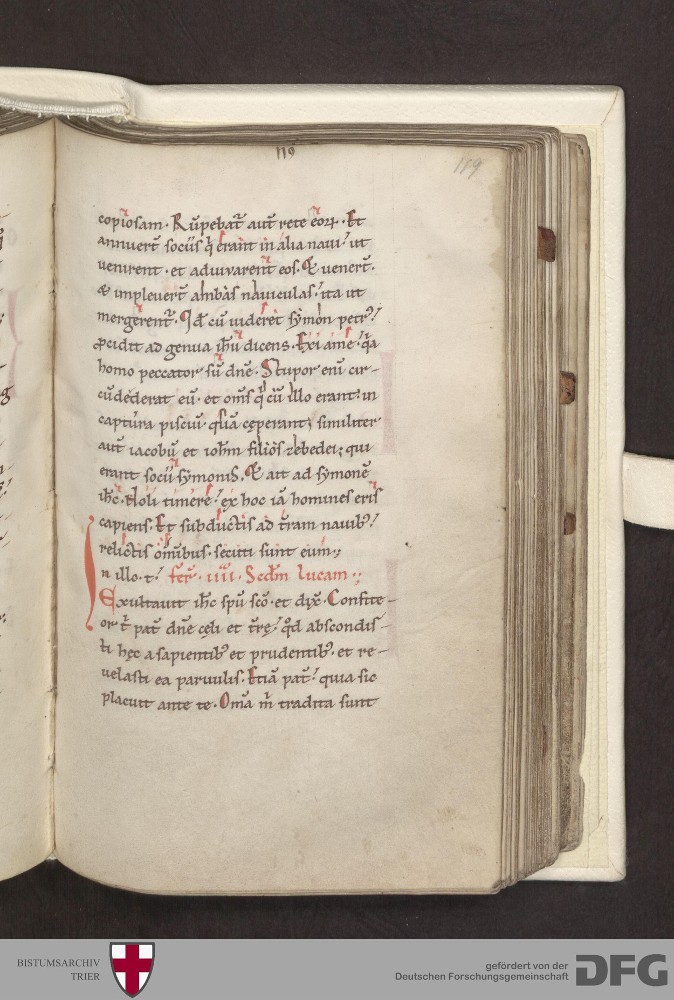 119
119
copiosam. Rūpebat᷑ aut̄ rete eoꝝ. Et
annuerт̄ sociis q̇ erant in alia naui. ut
uenirent. et adiuuarent eos. Et uenert̄.
et impleuert̄ ambas nauiculas. ita ut
mergerent᷑. Qd̄ cū uideret symon petrꝰ.
ꝓcidit ad genua ihū dicens. Exi a me. q̄a
homo peccator sū dn̄e. Stupor eni᷑ cir-
cūdederat eū. et om̄s q̇ cū illo erant. in
captura pisciū. quā cęperant; similiter
aut̄ iacobū et ioh̄m filios zebedei; qui
erant socii symonis. Et ait ad symonē
ih̄c. Noli timere. ex hoc iā homines eris
capiens. Et subductis ad t̄ram nauibꝰ.
relictis omnibus. secuti sunt eum;
In illo. t̄. fer̄. iiii. Scd̄m lucam;
Exultauit ih̄c spū sc̄o. et dix̄. Confite-
or t̄ pat̄ dn̄e cęli et t̄rę. qd̄ abscondis-
ti hęc a sapientibꝰ et prudentibꝰ. et re-
uelasti ea paruulis. Etiā pat̄. quia sic
placuit ante te. Om̄a m̄ tradita sunt
BISTUMSARCHIV
TRIER
gefördert von der
Deutschen Forschungsgemeinschaft
DFG